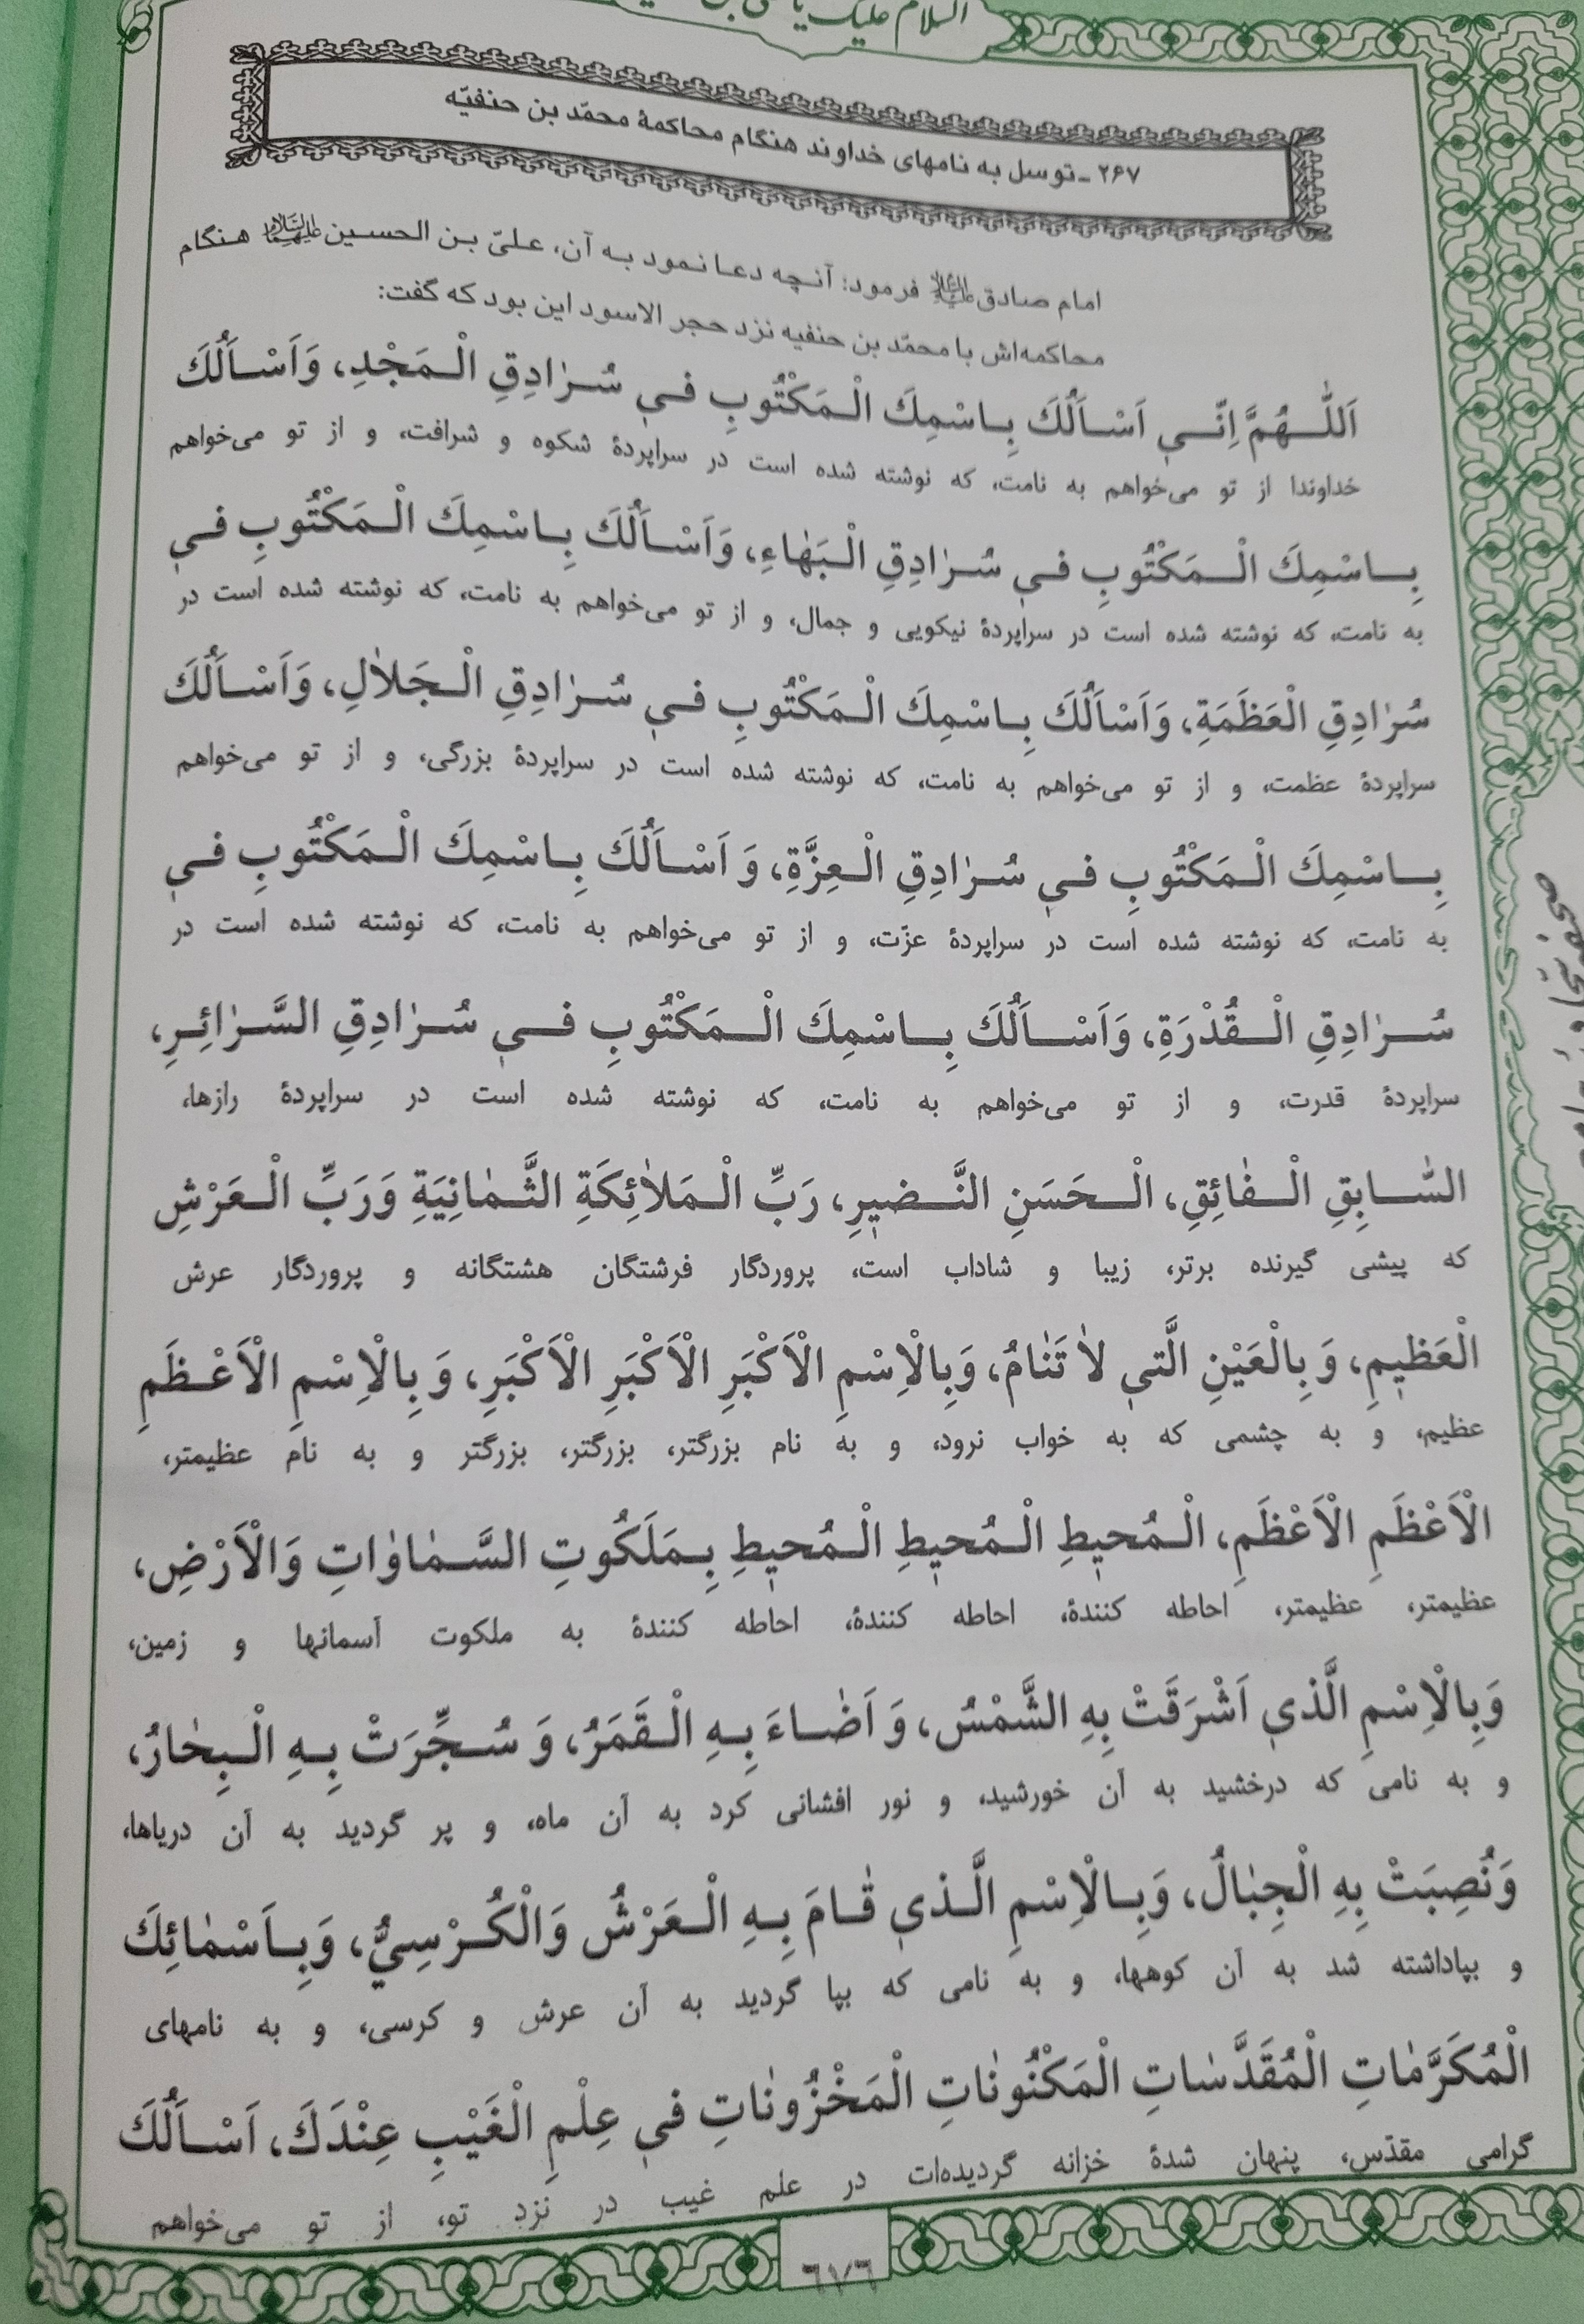 السلام عليك يا
۲۶۷ ـ توسل به نامهای خداوند هنگام محاکمهٔ محمّد بن حنفیّه
امام صادق علیه‌السلام فرمود: آنچه دعا نمود به آن، علیّ بن الحسین علیهماالسلام هنگام
محاکمه‌اش با محمّد بن حنفیه نزد حجر الاسود این بود که گفت:
اَللّٰهُمَّ اِنّي اَسْاَلُكَ بِاسْمِكَ الْمَكْتُوبِ في سُرٰادِقِ الْمَجْدِ، وَاَسْاَلُكَ
خداوندا از تو می‌خواهم به نامت، که نوشته شده است در سراپردهٔ شکوه و شرافت، و از تو می‌خواهم
بِاسْمِكَ الْمَكْتُوبِ في سُرٰادِقِ الْبَهٰاءِ، وَاَسْاَلُكَ بِاسْمِكَ الْمَكْتُوبِ في
به نامت، که نوشته شده است در سراپردهٔ نیکویی و جمال، و از تو می‌خواهم به نامت، که نوشته شده است در
سُرٰادِقِ الْعَظَمَةِ، وَاَسْاَلُكَ بِاسْمِكَ الْمَكْتُوبِ في سُرٰادِقِ الْجَلاٰلِ، وَاَسْاَلُكَ
سراپردهٔ عظمت، و از تو می‌خواهم به نامت، که نوشته شده است در سراپردهٔ بزرگی، و از تو می‌خواهم
بِاسْمِكَ الْمَكْتُوبِ في سُرٰادِقِ الْعِزَّةِ، وَ اَسْاَلُكَ بِاسْمِكَ الْمَكْتُوبِ في
به نامت، که نوشته شده است در سراپردهٔ عزّت، و از تو می‌خواهم به نامت، که نوشته شده است در
سُرٰادِقِ الْقُدْرَةِ، وَاَسْاَلُكَ بِاسْمِكَ الْمَكْتُوبِ في سُرٰادِقِ السَّرٰائِرِ،
سراپردهٔ قدرت، و از تو می‌خواهم به نامت، که نوشته شده است در سراپردهٔ رازها،
السّٰابِقِ الْفٰائِقِ، الْحَسَنِ النَّضيرِ، رَبِّ الْمَلاٰئِكَةِ الثَّمٰانِيَةِ وَرَبِّ الْعَرْشِ
که پیشی گیرنده برتر، زیبا و شاداب است، پروردگار فرشتگان هشتگانه و پروردگار عرش
الْعَظيمِ، وَ بِالْعَيْنِ الَّتي لاٰ تَنٰامُ، وَبِالْاِسْمِ الْاَكْبَرِ الْاَكْبَرِ الْاَكْبَرِ، وَ بِالْاِسْمِ الْاَعْظَمِ
عظیم، و به چشمی که به خواب نرود، و به نام بزرگتر، بزرگتر، بزرگتر و به نام عظیمتر،
الْاَعْظَمِ الْاَعْظَمِ، الْمُحيطِ الْمُحيطِ الْمُحيطِ بِمَلَكُوتِ السَّمٰاوٰاتِ وَالْاَرْضِ،
عظیمتر، عظیمتر، احاطه کنندهٔ، احاطه کنندهٔ، احاطه کنندهٔ به ملکوت آسمانها و زمین،
وَبِالْاِسْمِ الَّذي اَشْرَقَتْ بِهِ الشَّمْسُ، وَ اَضٰاءَ بِهِ الْقَمَرُ، وَ سُجِّرَتْ بِهِ الْبِحٰارُ،
و به نامی که درخشید به آن خورشید، و نور افشانی کرد به آن ماه، و پر گردید به آن دریاها،
وَنُصِبَتْ بِهِ الْجِبٰالُ، وَبِالْاِسْمِ الَّذي قٰامَ بِهِ الْعَرْشُ وَالْكُرْسِيُّ، وَبِاَسْمٰائِكَ
و بپاداشته شد به آن کوهها، و به نامی که بپا گردید به آن عرش و کرسی، و به نامهای
الْمُكَرَّمٰاتِ الْمُقَدَّسٰاتِ الْمَكْنُونٰاتِ الْمَخْزُونٰاتِ في عِلْمِ الْغَيْبِ عِنْدَكَ، اَسْاَلُكَ
گرامی مقدّس، پنهان شدهٔ خزانه گردیده‌ات در علم غیب در نزد تو، از تو می‌خواهم
٦٧٦